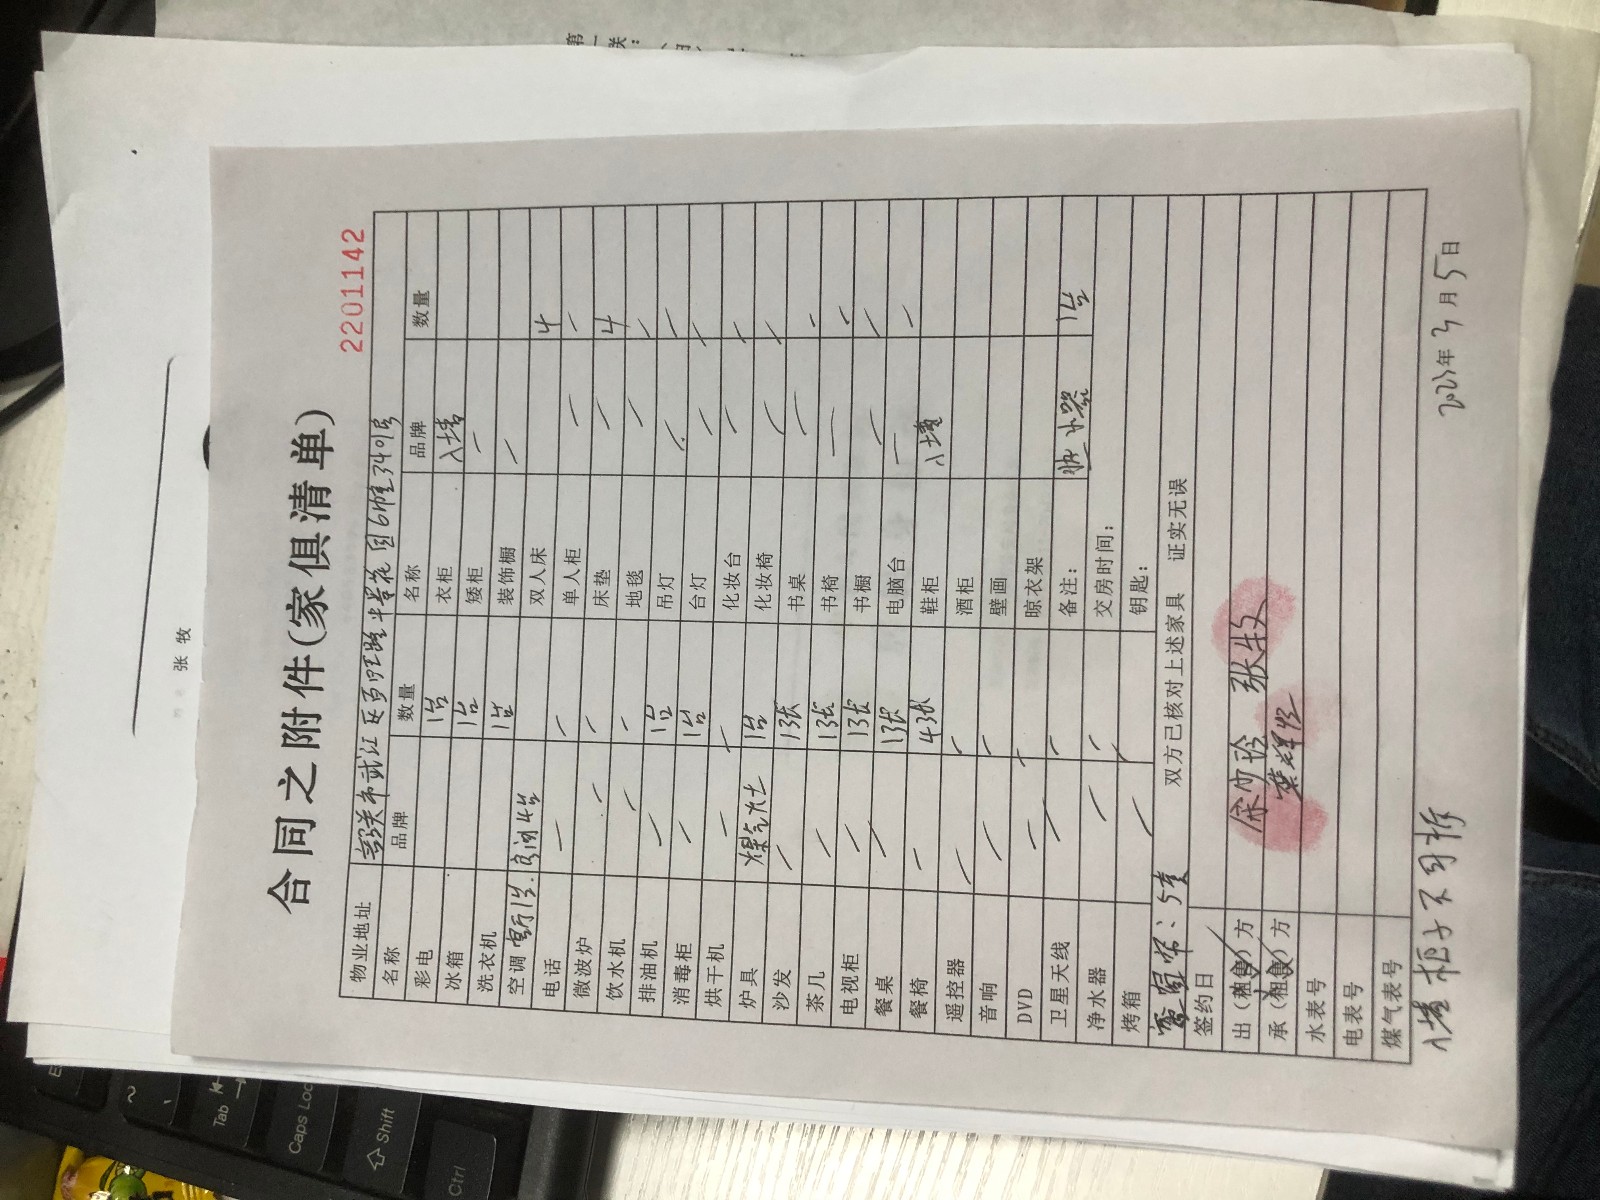 第一联：
张 牧
2201142
合同之附件(家俱清单)
物业地址 韶关市武江区百旺路半岛花园6幢3401号
名称 品牌 数量 名称 品牌 数量
彩电 1台 衣柜 入墙
冰箱 1台 矮柜 /
洗衣机 1台 装饰橱 /
空调 客厅1台.房间4台 双人床 4
电话 / / 单人柜 / /
微波炉 / / 床垫 / 4
饮水机 / / 地毯 / /
排油机 / 1台 吊灯 / /
消毒柜 / 1台 台灯 / /
烘干机 / / 化妆台 / /
炉具 煤气灶 1台 化妆椅 / /
沙发 / 1张 书桌 / /
茶几 / 1张 书椅 / /
电视柜 / 1张 书橱 / /
餐桌 / 1张 电脑台 / /
餐椅 / 4张 鞋柜 入墙
遥控器 / / 酒柜
音响 / / 壁画
DVD / / 晾衣架
卫星天线 / / 备注： 热水器 1台
净水器 / / 交房时间：
烤箱 / 钥匙：
窗帘：5套 双方已核对上述家具 证实无误
签约日
出(租)方 张牧
承(租)方
水表号
电表号
煤气表号
入墙柜子不可拆
2023年3月5日
Tab
Caps Loc
Shift
Ctrl